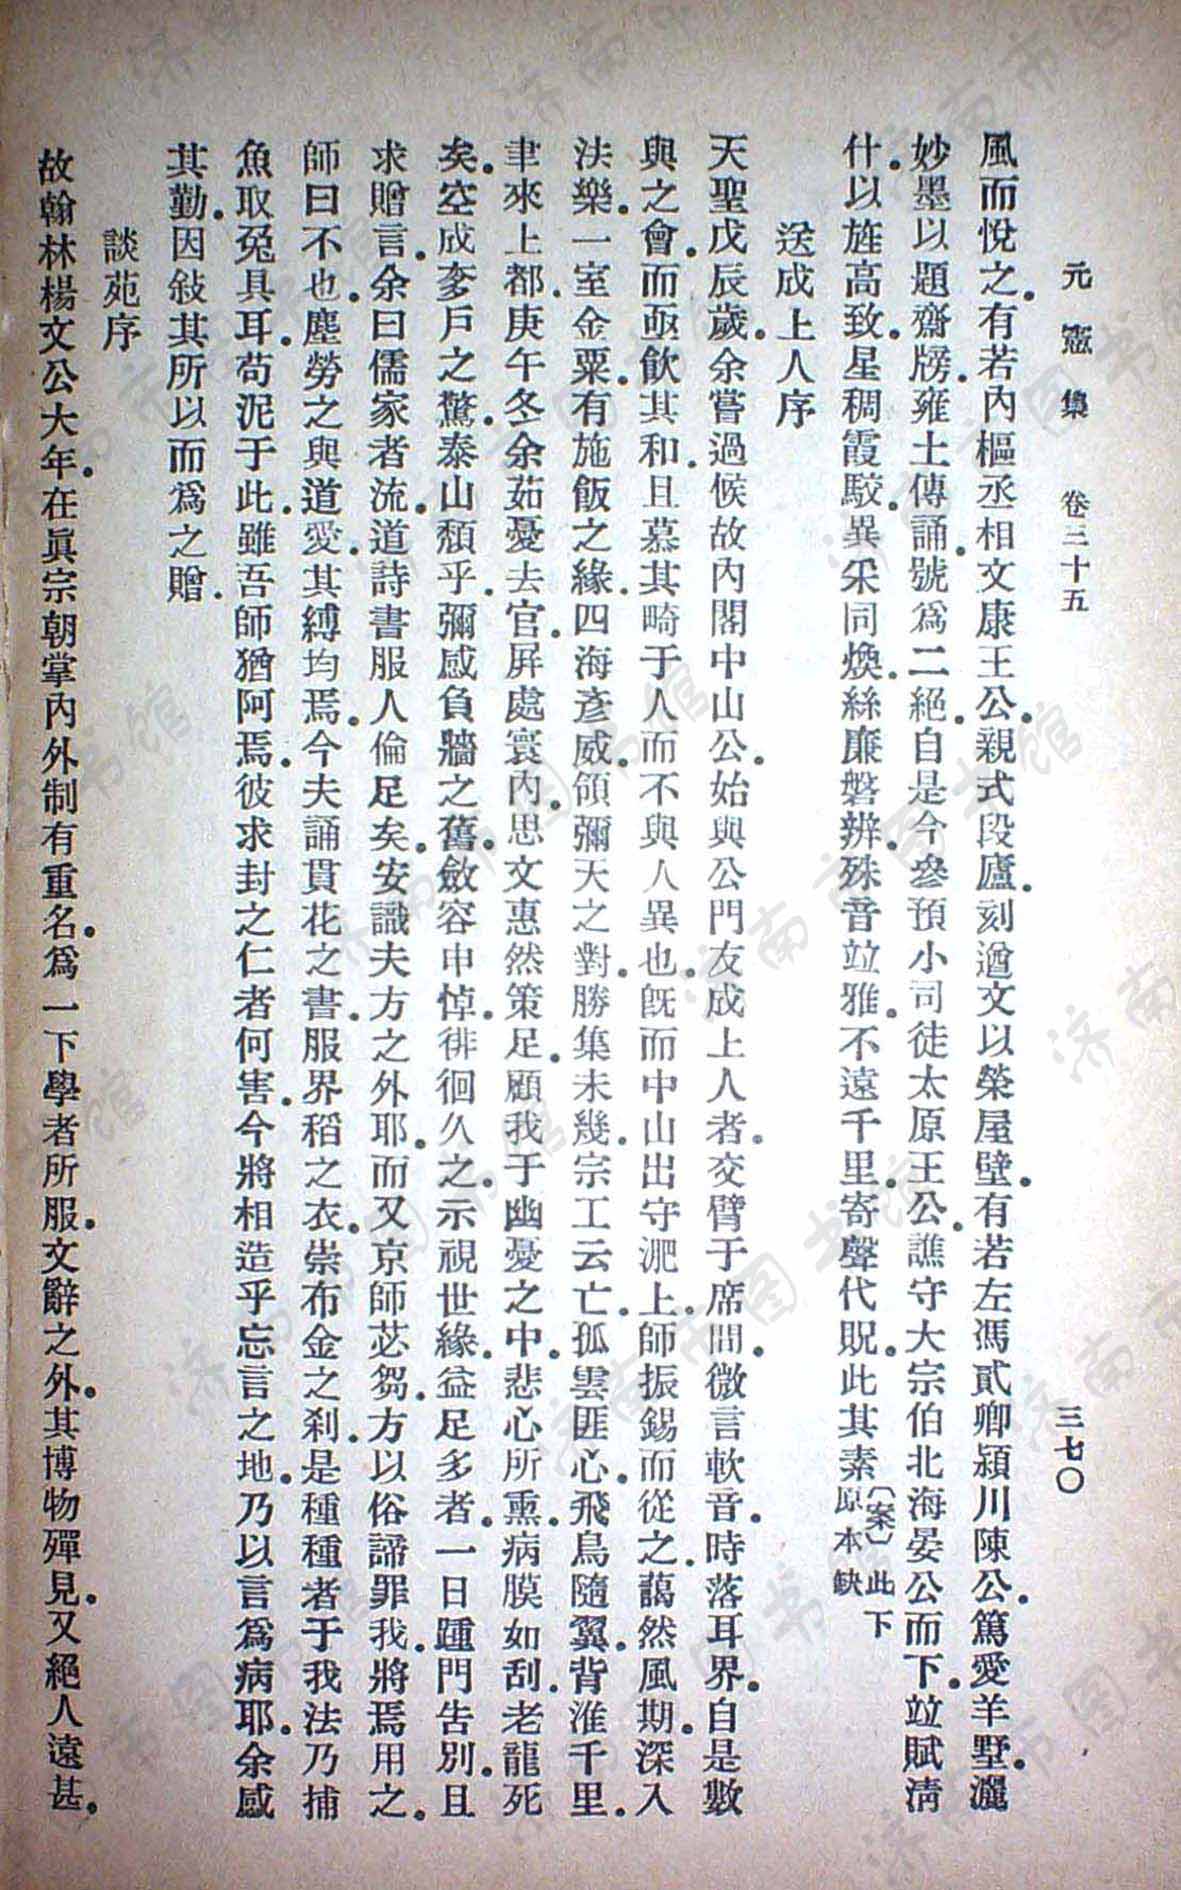 元憲集 卷三十五 三七〇
風而悅之.有若內樞丞相文康王公.親式段廬.刻遒文以榮屋壁.有若左馮貳卿潁川陳公.篤愛羊墅.灑
妙墨以題齋牓.雍土傳誦.號爲二絕.自是今參預小司徒太原王公.譙守大宗伯北海晏公而下.竝賦淸
什.以旌高致.星稠霞駮.異采同煥.絲廉磐辨.殊音竝雅.不遠千里.寄聲代貺.此其素〔案〕此下原本缺
送成上人序
天聖戊辰歲.余嘗過候故內閣中山公.始與公門友成上人者.交臂于席間.微言軟音.時落耳界.自是數
與之會.而亟飮其和.且慕其畸于人而不與人異也.旣而中山出守淝上.師振錫而從之.藹然風期.深入
法樂.一室金粟.有施飯之緣.四海彥威.領彌天之對.勝集未幾.宗工云亡.孤雲匪心.飛鳥隨翼.背淮千里.
聿來上都.庚午冬.余茹憂去官.屛處寰內.思文惠然策足.顧我于幽憂之中.悲心所熏.病膜如刮.老龍死
矣.空成奓戶之驚.泰山頹乎.彌感負牆之舊.斂容申悼.徘徊久之.示視世緣.益足多者.一日踵門吿別.且
求贈言.余曰儒家者流.道詩書服人倫足矣.安識夫方之外耶.而又京師苾芻.方以俗諦罪我.將焉用之.
師曰不也.塵勞之與道愛.其縛均焉.今夫誦貫花之書.服界稻之衣.崇布金之刹.是種種者于我法乃捕
魚取兔具耳.苟泥于此.雖吾師猶阿焉.彼求封之仁者何害.今將相造乎忘言之地.乃以言爲病耶.余感
其勤.因敍其所以而爲之贈.
談苑序
故翰林楊文公大年.在眞宗朝掌內外制有重名.爲一下學者所服.文辭之外.其博物殫見.又絕人遠甚.